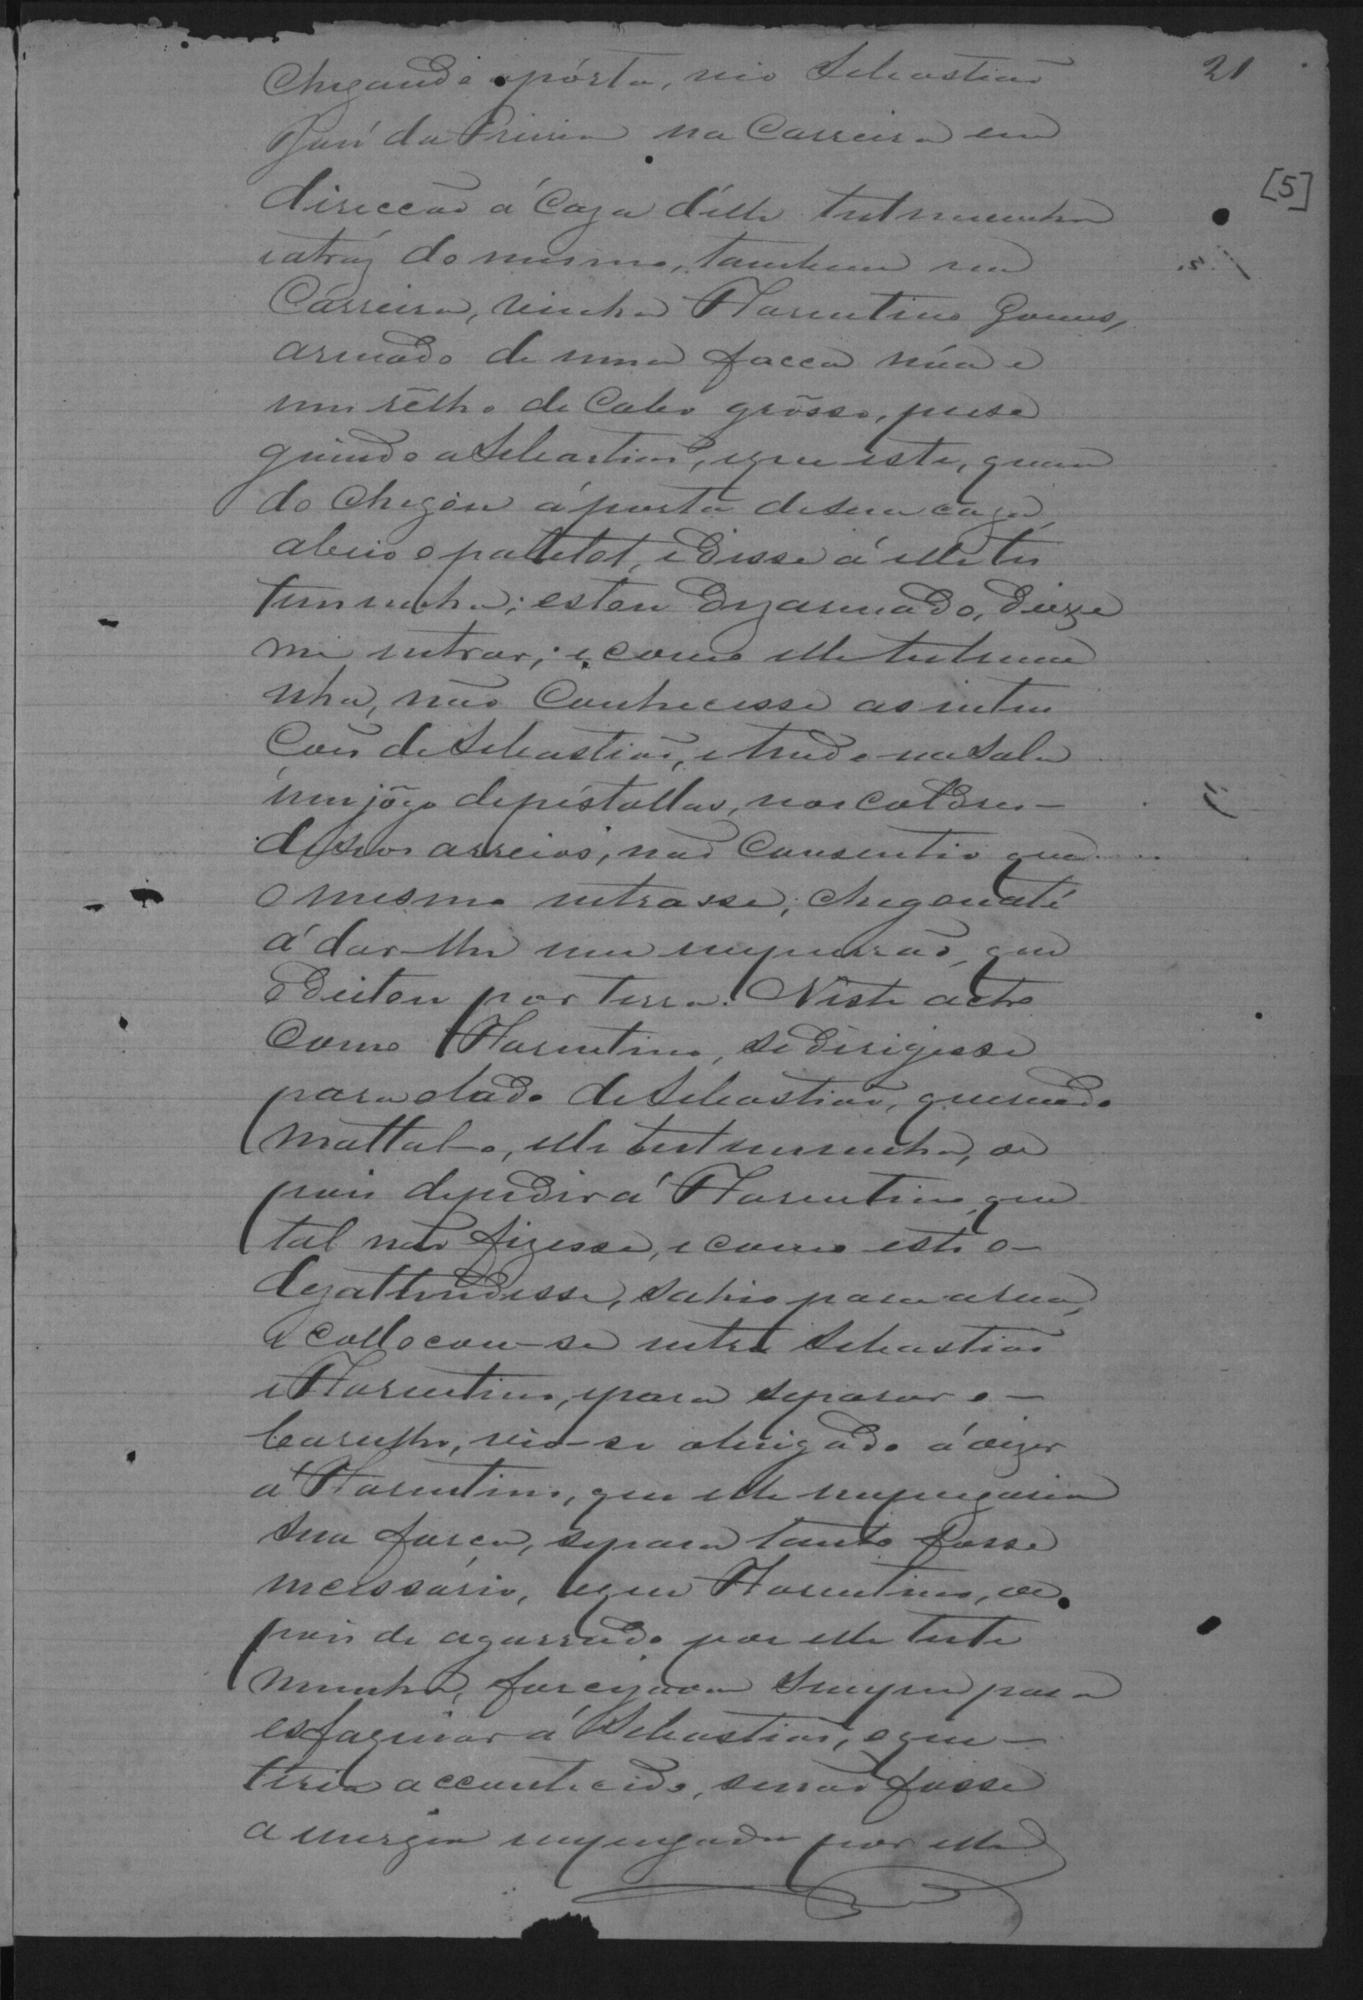 21
chegando á pórta, vio Sebastião
José da Vieira na Carreira em
[5]
direccão á Caza d'elle testemunha
e atráz do mesmo, tambem na
Carreira, vinha Florentino Gomes,
armado de uma facca núa e
um rêlho de Cabo grôsso, perse
guindo a Sebastião, e que este, quan
do chegou á porta de sua caza,
abrio o palletot, e disse á elle tes
temunha; estou dezarmado, deixe
me entrar; e como elle testemu
nha, não Conhecesse as inten
Cões de Sebastião, e tendo na Sala
um jôgo de pistollas, nos coldres
de seos arreios, não Consentio que
o mesmo entrasse; chegou até
á dar-lhe um empurrão, que
o deitou por terra. N'este acto
Como Florentino, se dirigisse
para o lado de Sebastião, querendo
mattal-o, elle testemunha, de
pois de pedir á Florentino, que
tal não fizesse, e como este o
dezattendesse, sahio para a rua,
e collocou-se entre Sebastião
e Florentino, para separar o
barulho, vio-se obrigado á dizer
á Florentino, que elle empregaria
sua força, se para tanto fosse
necessário, e que Florentino, de
pois de agarrado por elle teste
munha, forcejava sempre para
esfaquiar á Sebastião, o que
teria accontecido, se não fosse
a energia empregada por elle